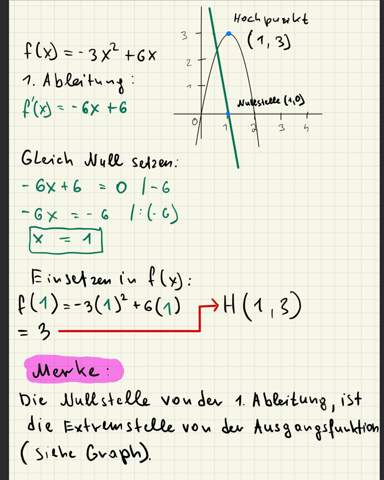 f(x) = -3x² + 6x
1. Ableitung:
f'(x) = -6x + 6
Hochpunkt
(1,3)
3
2
1
Nullstelle (1,0)
0 1 2 3 4
Gleich Null setzen:
-6x + 6 = 0 | -6
-6x = -6 | :(-6)
x = 1
Einsetzen in f(x):
f(1) = -3(1)² + 6(1) → H(1,3)
= 3
Merke:
Die Nullstelle von der 1. Ableitung, ist
die Extremstelle von der Ausgangsfunktion
(siehe Graph).